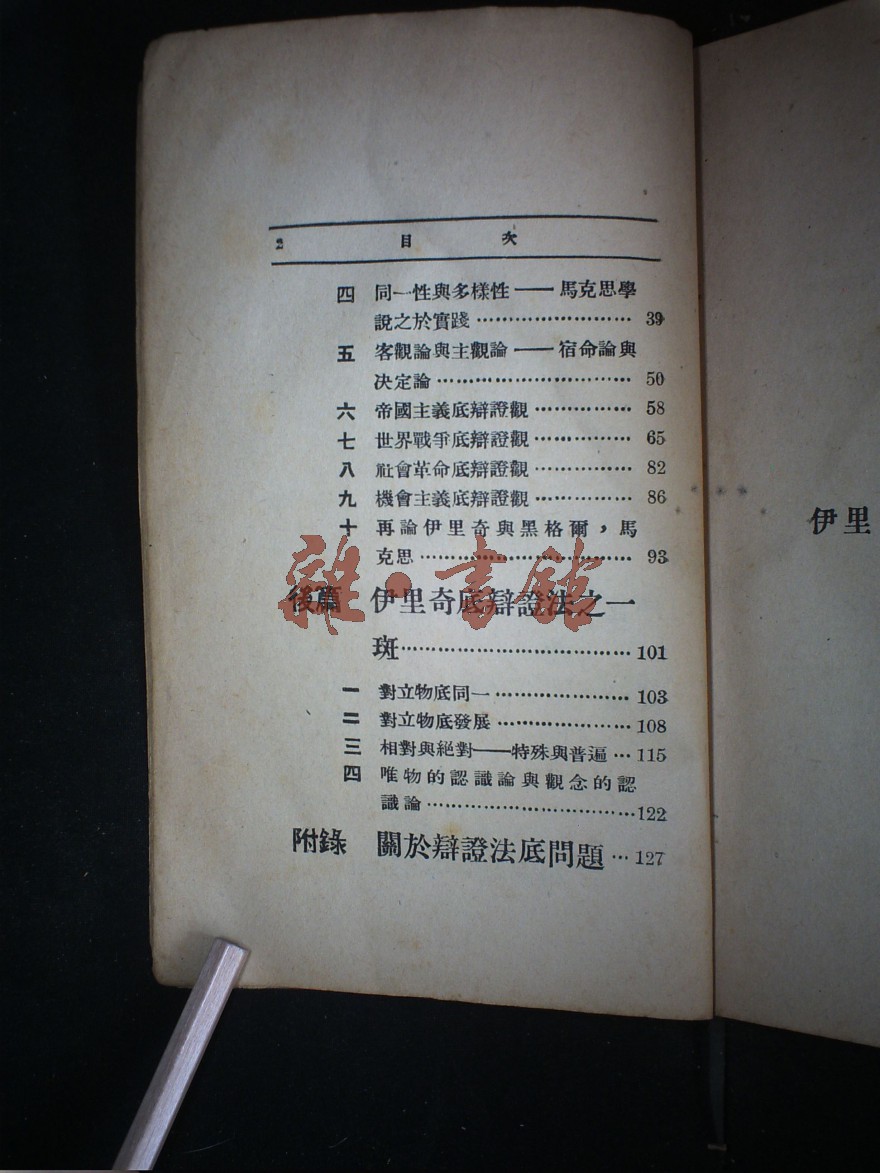 2 目次
四 同一性與多樣性——馬克思學
說之於實踐…………………… 39
五 客觀論與主觀論——宿命論與
决定論………………………… 50
六 帝國主義底辯證觀……………… 58
七 世界戰爭底辯證觀……………… 65
八 社會革命底辯證觀……………… 82
九 機會主義底辯證觀……………… 86
十 再論伊里奇與黑格爾，馬
克思…………………………… 93
後篇 伊里奇底辯證法之一
斑…………………………… 101
一 對立物底同一…………………… 103
二 對立物底發展…………………… 108
三 相對與絕對——特殊與普遍… 115
四 唯物的認識論與觀念的認
識論…………………………122
附錄 關於辯證法底問題… 127
伊里
雜·書館